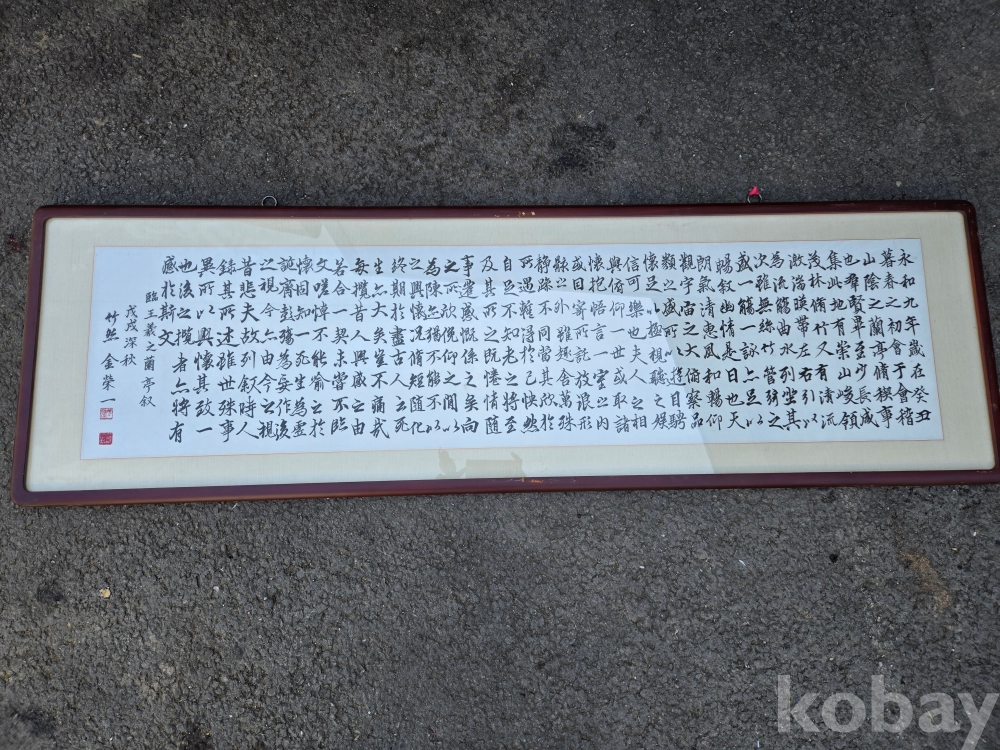 永和九年歲在癸丑
暮春之初會于會稽
山陰之蘭亭脩禊事
也羣賢畢至少長咸
集此地有崇山峻領
茂林脩竹又有清流
激湍暎帶左右引以
為流觴曲水列坐其
次雖無絲竹管弦之
盛一觴一詠亦足以
暢叙幽情是日也天
朗氣清惠風和暢仰
觀宇宙之大俯察品
類之盛所以遊目騁
懷足以極視聽之娛
信可樂也夫人之相
與俯仰一世或取諸
懷抱悟言一室之內
或因寄所託放浪形
骸之外雖趣舍萬殊
靜躁不同當其欣於
所遇蹔得於己快然
自足不知老之將至
及其所之既惓情隨
事遷感慨係之矣向
之所欣俛仰之間以
為陳迹猶不能不以
之興懷況脩短隨化
終期於盡古人云死
生亦大矣豈不痛哉
每攬昔人興感之由
若合一契未嘗不臨
文嗟悼不能喻之於
懷固知一死生為虛
誕齊彭殤為妄作後
之視今亦由今之視
昔悲夫故列叙時人
錄其所述雖世殊事
異所以興懷其致一
也後之攬者亦將有
感於斯文
臨王羲之蘭亭叙
戊戌深秋
竹然 金榮一
kobay